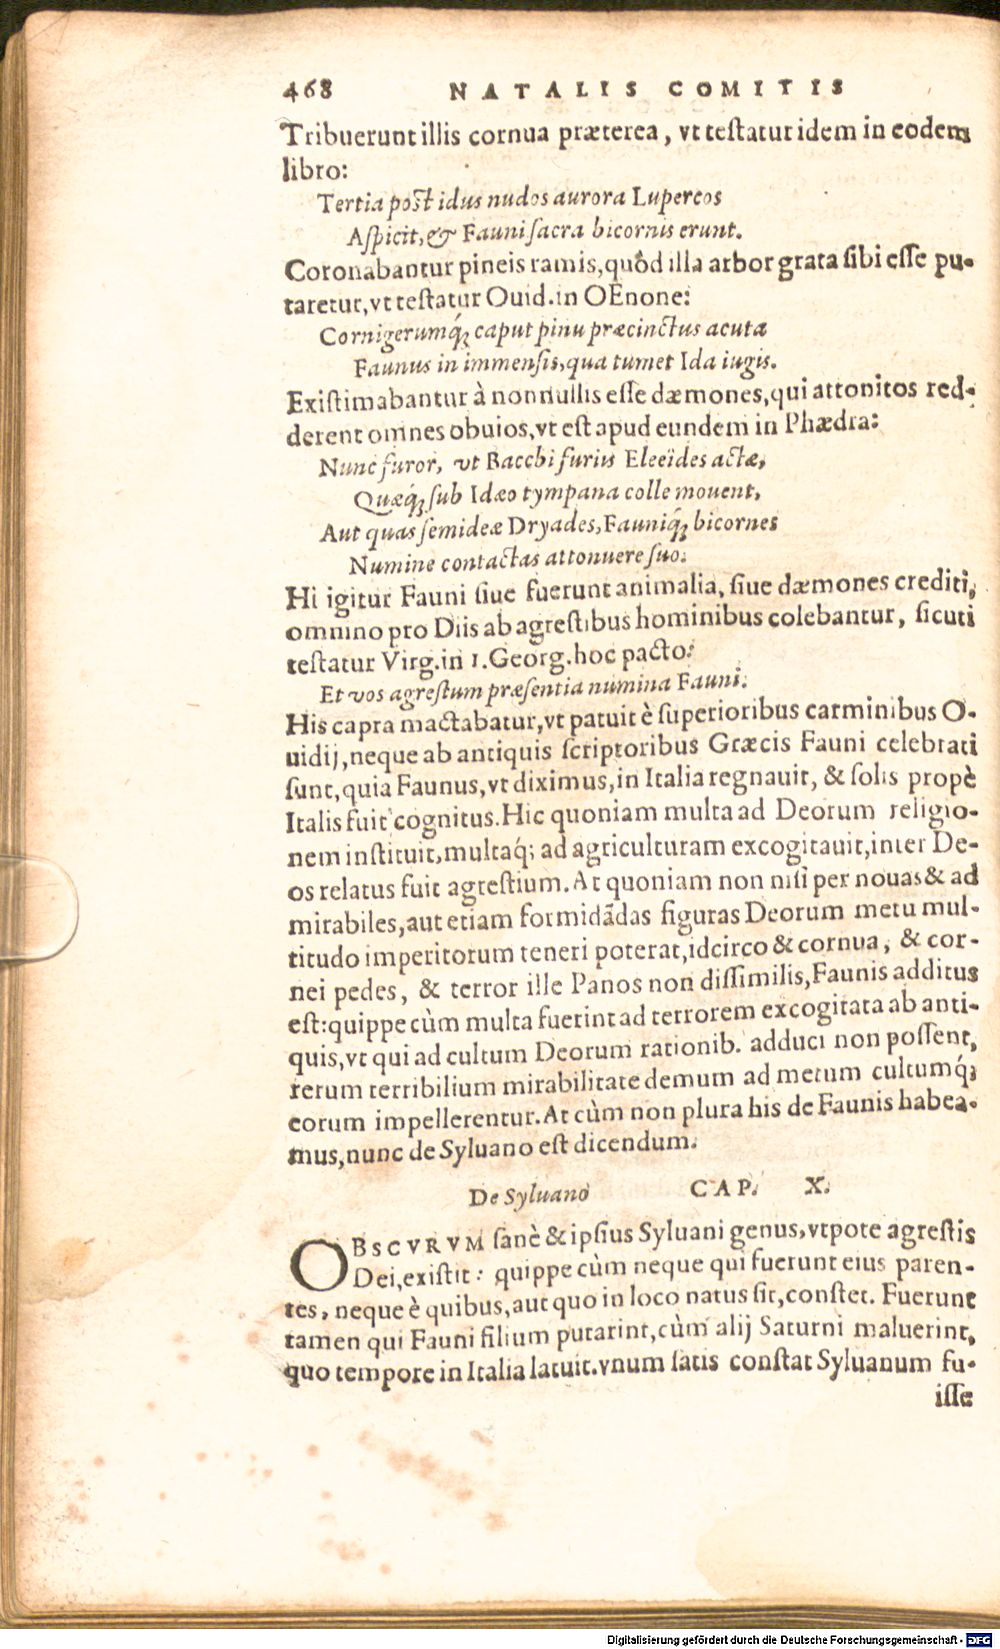 468 NATALIS COMITIS
Tribuerunt illis cornua præterea, vt testatur idem in eodem
libro:
Tertia post idus nudos aurora Lupercos
Aspicit, & Fauni sacra bicornis erunt.
Coronabantur pineis ramis, quòd illa arbor grata sibi esse pu-
taretur, vt testatur Ouid. in OEnone:
Cornigerumq́; caput pinu præcinctus acuta
Faunus in immensis, qua tumet Ida iugis.
Existimabantur à nonnullis esse dæmones, qui attonitos red-
derent omnes obuios, vt est apud eundem in Phædra:
Nunc furor, vt Bacchi furiis Eleëides actæ,
Quæq́; sub Idæo tympana colle mouent,
Aut quas semideæ Dryades, Fauniq́; bicornes
Numine contactas attonuere suo.
Hi igitur Fauni siue fuerunt animalia, siue dæmones crediti,
omnino pro Diis ab agrestibus hominibus colebantur, sicuti
testatur Virg. in 1. Georg. hoc pacto:
Et vos agrestum præsentia numina Fauni.
His capra mactabatur, vt patuit è superioribus carminibus O-
uidij, neque ab antiquis scriptoribus Græcis Fauni celebrati
sunt, quia Faunus, vt diximus, in Italia regnauit, & solis propè
Italis fuit cognitus. Hic quoniam multa ad Deorum religio-
nem instituit, multaq́; ad agriculturam excogitauit, inter De-
os relatus fuit agrestium. At quoniam non nisi per nouas & ad
mirabiles, aut etiam formidãdas figuras Deorum metu mul-
titudo imperitorum teneri poterat, idcirco & cornua, & cor-
nei pedes, & terror ille Panos non dissimilis, Faunis additus
est: quippe cùm multa fuerint ad terrorem excogitata ab anti-
quis, vt qui ad cultum Deorum rationib. adduci non possent,
rerum terribilium mirabilitate demum ad metum cultumq́;
eorum impellerentur. At cùm non plura his de Faunis habea-
mus, nunc de Syluano est dicendum.
De Syluano CAP. X.
OBSCVRVM sanè & ipsius Syluani genus, vtpote agrestis
Dei, existit: quippe cùm neque qui fuerunt eius paren-
tes, neque è quibus, aut quo in loco natus sit, constet. Fuerunt
tamen qui Fauni filium putarint, cùm alij Saturni maluerint,
quo tempore in Italia latuit. vnum satis constat Syluanum fu-
isse
Digitalisierung gefördert durch die Deutsche Forschungsgemeinschaft - DFG